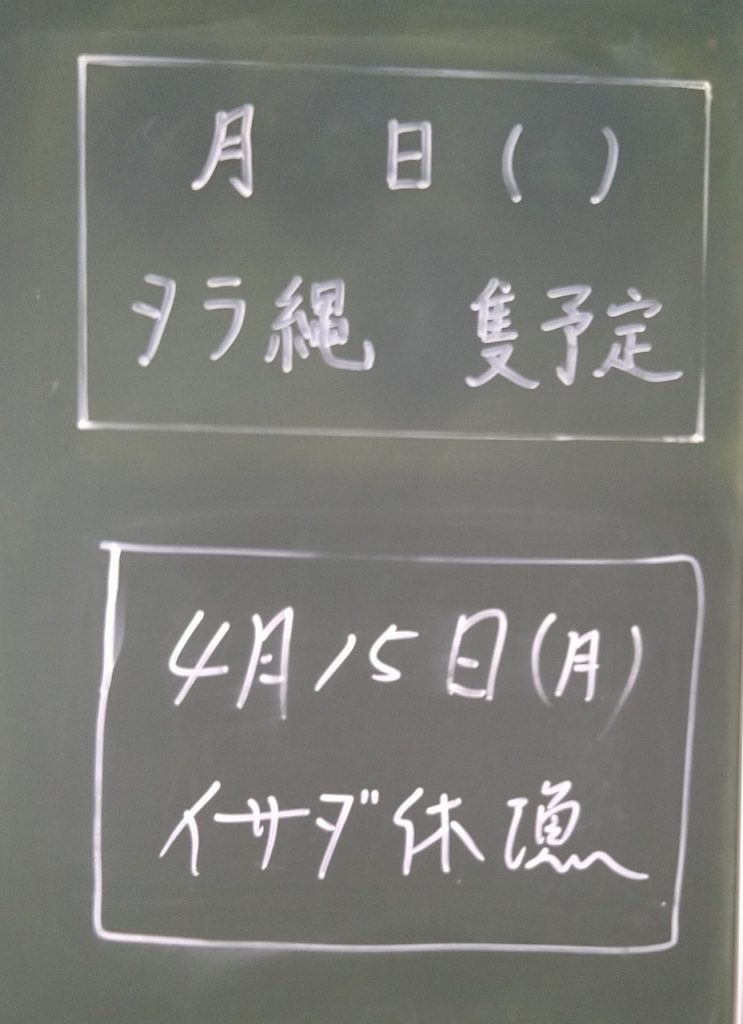 月 日( )
タラ縄 隻予定
4月15日(月)
イサダ休漁